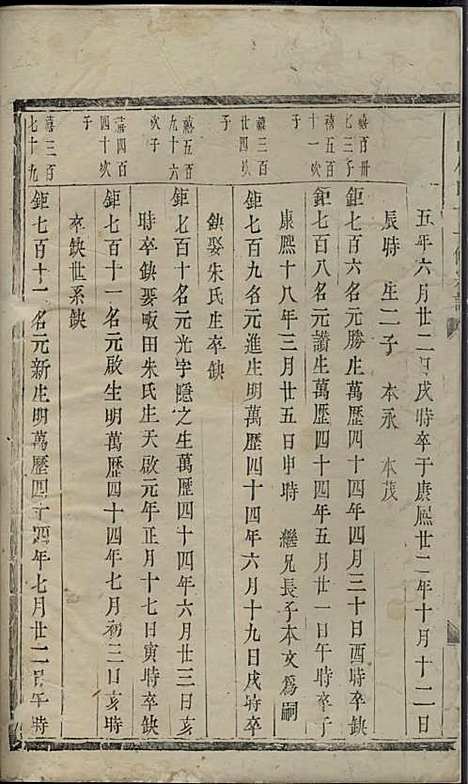 五年六月廿二日戌時卒于康熈廿二年十月十二日
辰時 生二子 本永 本茂
禧百卅七三子
鉅七百六名元勝生萬歷四十四年四月三十日酉時卒缺
禧五百十一次子
鉅七百八名元讚生萬歷四十四年五月廿一日午時卒于
康熈十八年三月廿五日申時 繼兄長子本文為嗣
禧三百廿四次子
鉅七百九名元進生明萬歷四十四年六月十九日戌時卒
缺娶朱氏生卒缺
禧五百九十六次子
鉅七百十名元光字隱之生萬歷四十四年六月廿三日亥
時卒缺娶畈田朱氏生天啟元年正月十七日寅時卒缺
四百四十次子
鉅七百十一名元啟生明萬歷四十四年七月初二日亥時
卒缺世系缺
禧三百七十九
鉅七百十一名元新生明萬歷四十四年七月廿二日午時